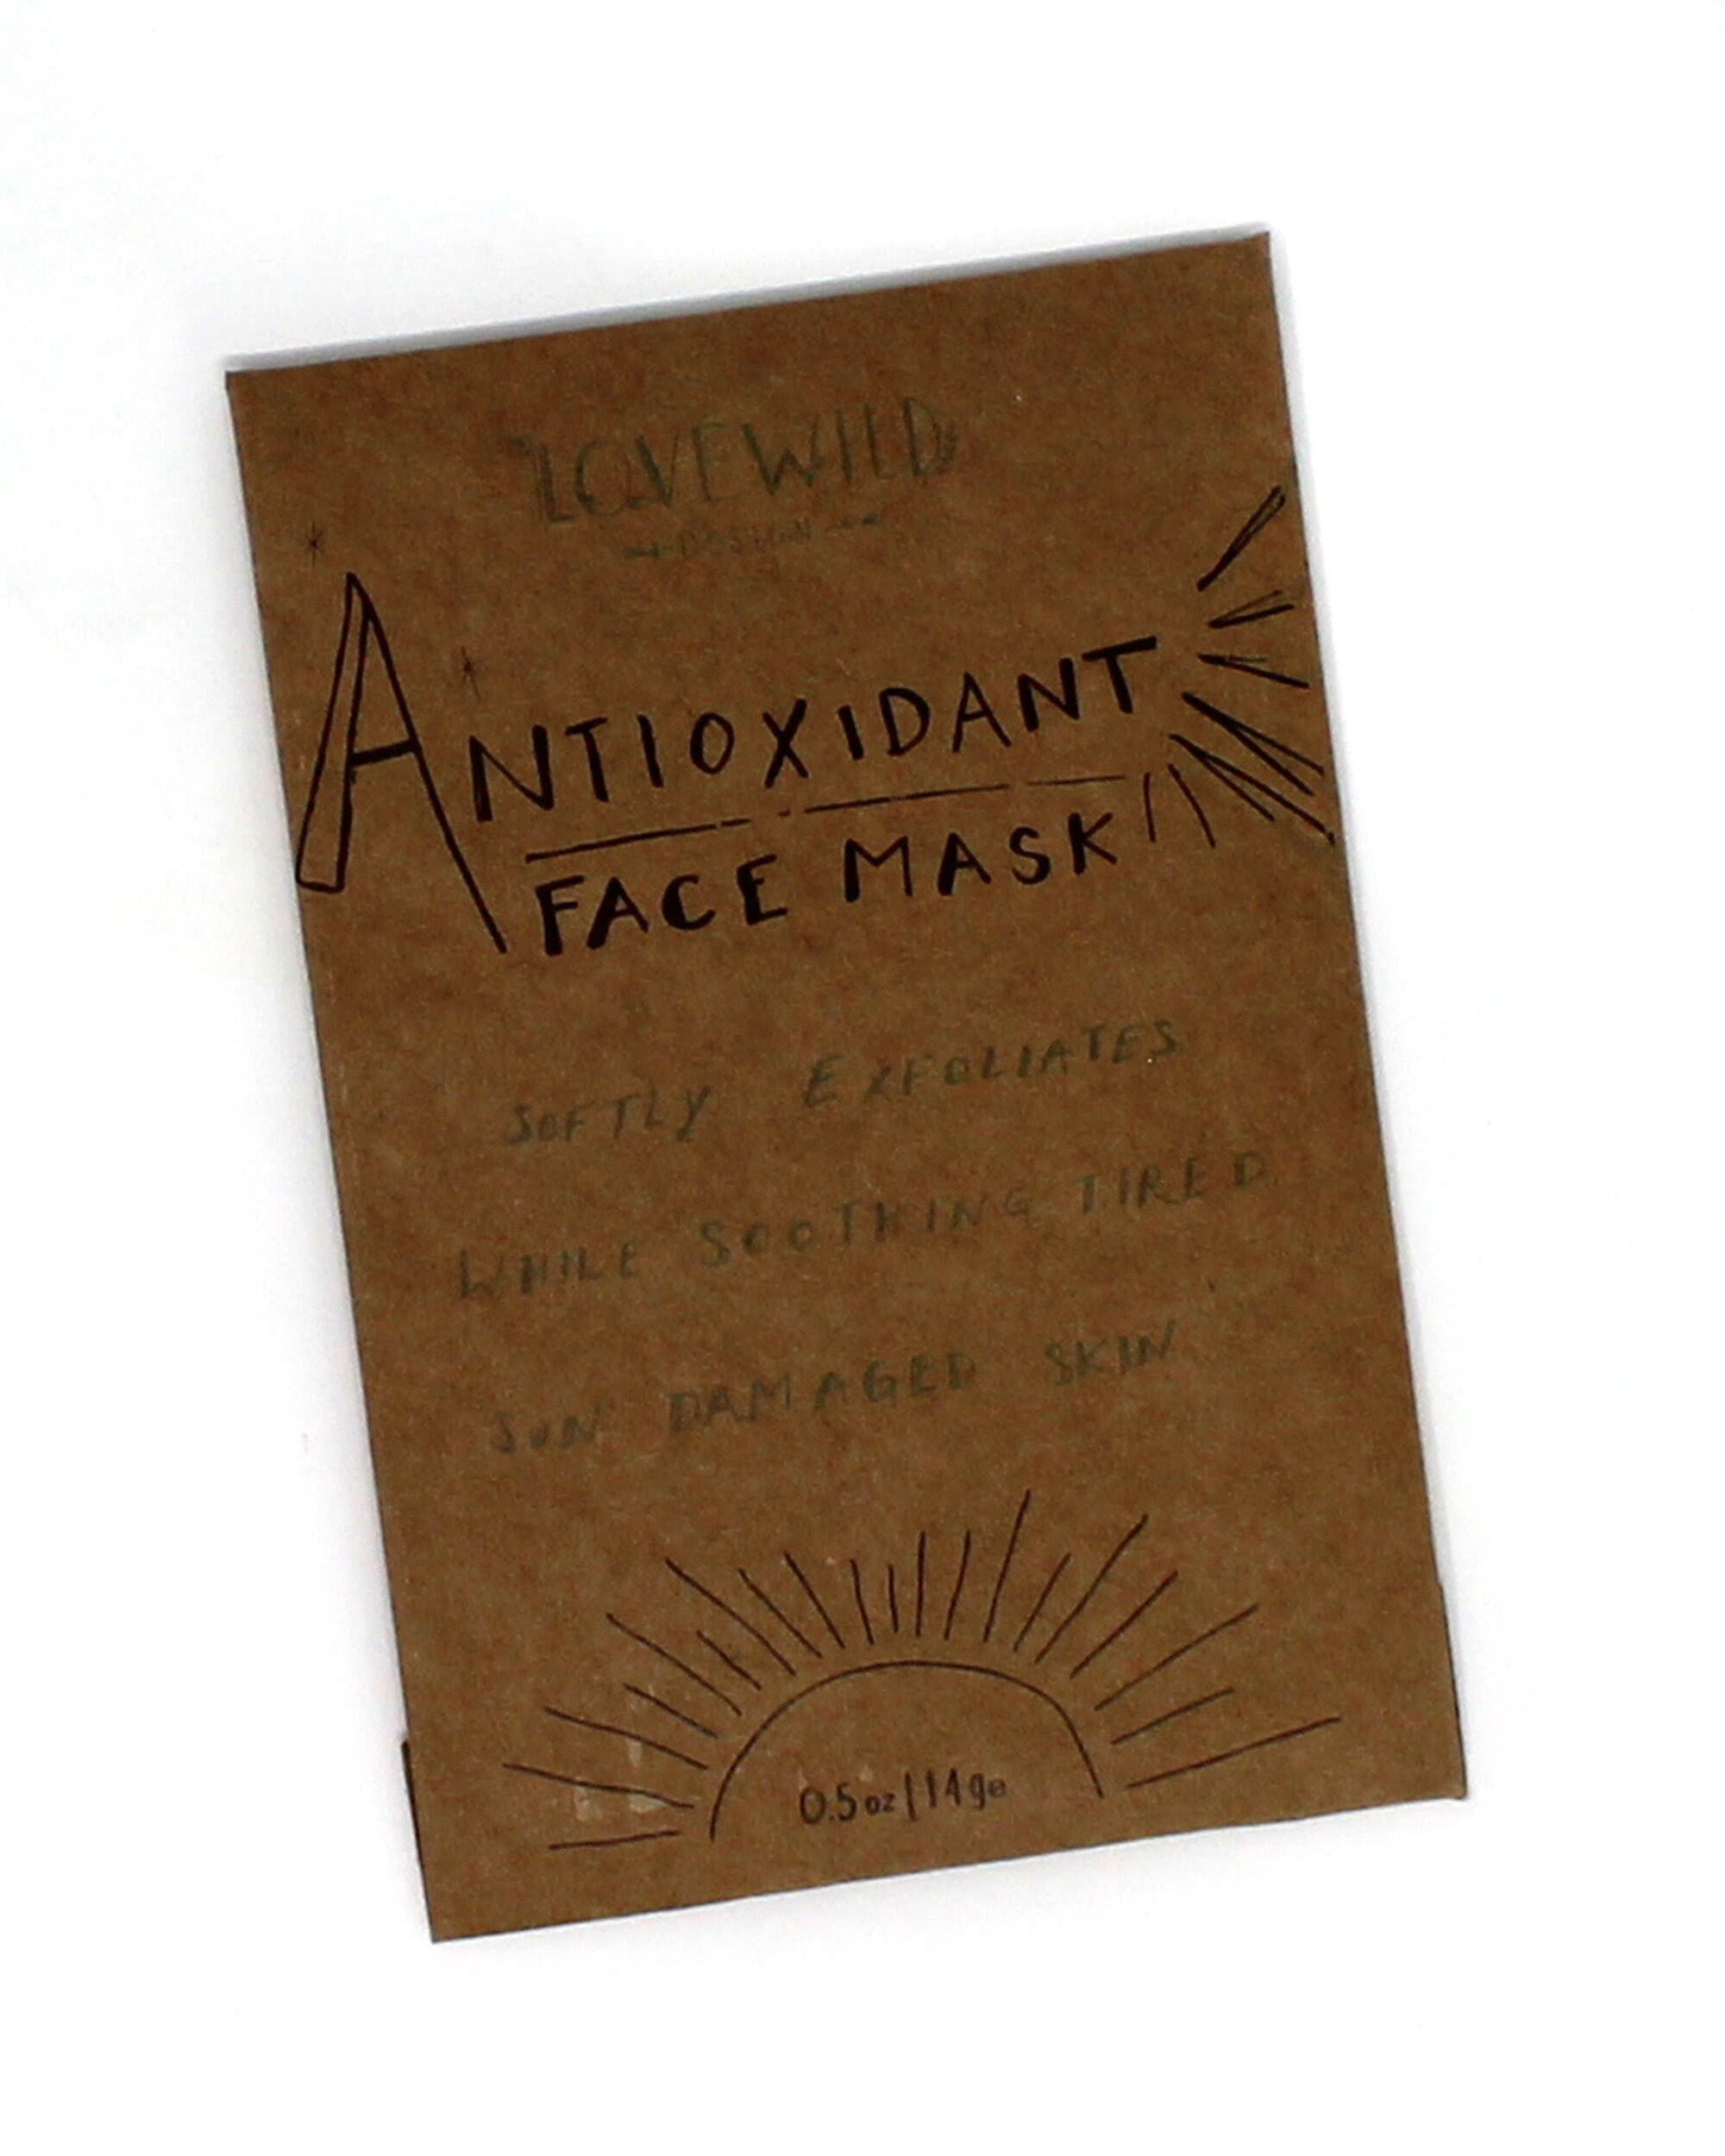 LOVEWILD
DESIGN
ANTIOXIDANT
FACE MASK
SOFTLY EXFOLIATES
WHILE SOOTHING TIRED
SUN DAMAGED SKIN
0.5oz|14ge